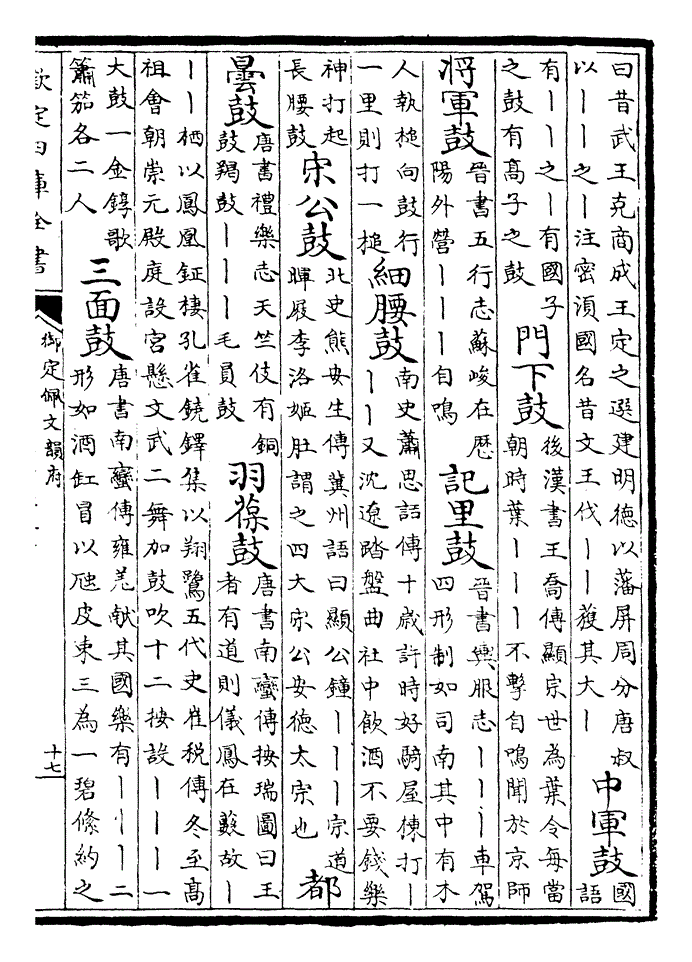 曰昔武王克商成王定之選建明德以藩屏周分唐叔
以丨丨之丨注密湏國名昔文王伐丨丨獲其大丨
中軍鼓
國
語
有丨丨之丨有國子
之鼓有髙子之鼓
門下鼓
後漢書王喬傳顯宗世為葉令每當
朝時葉丨丨丨不擊自鳴聞於京師
將軍鼓
晉書五行志蘇峻在歴
陽外營丨丨丨自鳴
記里鼓
晉書輿服志丨丨丨車駕
四形制如司南其中有木
人執槌向鼓行
一里則打一槌
細腰鼓
南史蕭思話傳十歳許時好騎屋棟打丨
丨丨又沈遼踏盤曲社中飲酒不要錢樂
神打起
長腰鼓
宋公鼓
北史熊安生傳冀州語曰顯公鐘丨丨丨宗道
暉屐李洛姬肚謂之四大宋公安徳太宗也
都
曇鼓
唐書禮樂志天竺伎有銅
鼓羯鼓丨丨丨毛員鼓
羽葆鼓
唐書南蠻傳按瑞圖曰王
者有道則儀鳳在藪故丨
丨丨栖以鳳凰鉦棲孔雀鐃鐸集以翔鷺五代史崔棁傳冬至髙
祖會朝崇元殿庭設宮懸文武二舞加鼓吹十二按設丨丨丨一
大鼓一金錞歌
簫笳各二人
三面鼓
唐書南蠻傳雍羌献其國樂有丨丨丨二
形如酒缸冒以虺皮束三為一碧絛約之
欽定四庫全書
御定佩文韻府
十七